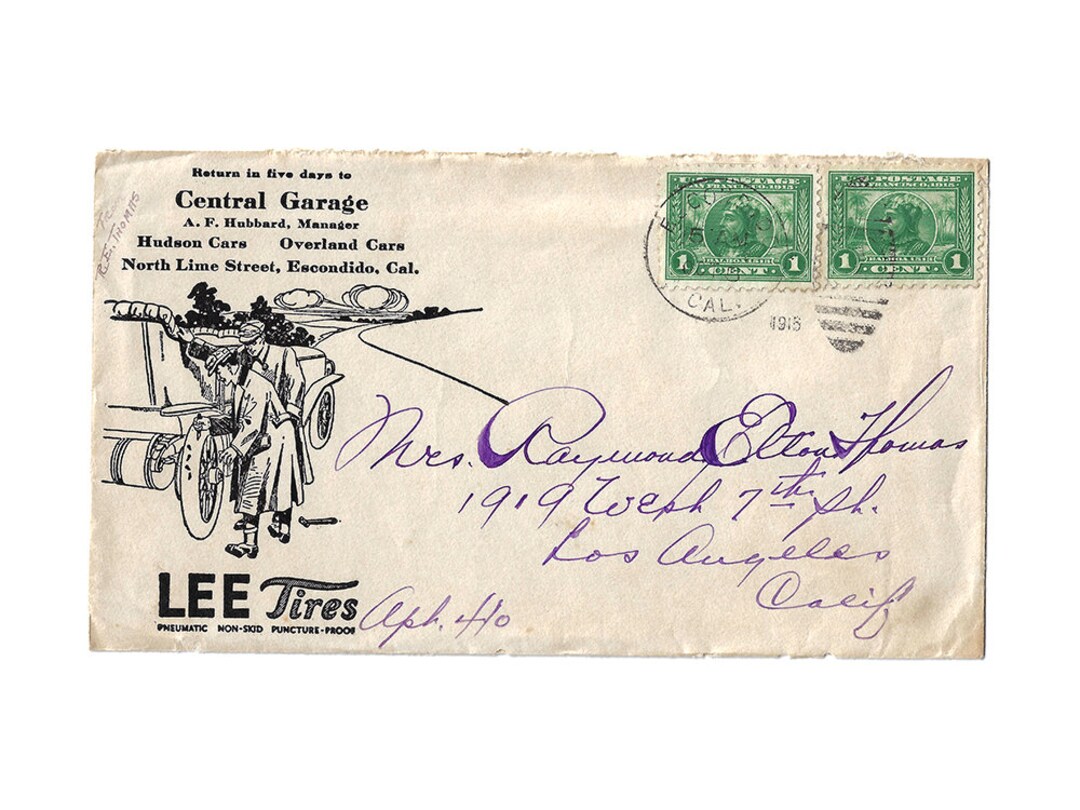 Return in five days to
Central Garage
A. F. Hubbard, Manager
Hudson Cars Overland Cars
North Lime Street, Escondido, Cal.
R.E. THOMAS
U.S. POSTAGE
SAN FRANCISCO, 1915
BALBOA 1513
1 CENT 1
U.S. POSTAGE
SAN FRANCISCO, 1915
BALBOA 1513
1 CENT 1
CAL.
1916
Mrs. Raymond Elton Thomas
1919 West 7th St.
Los Angeles
Calif
LEE Tires
PNEUMATIC NON-SKID PUNCTURE-PROOF
Apt. 410